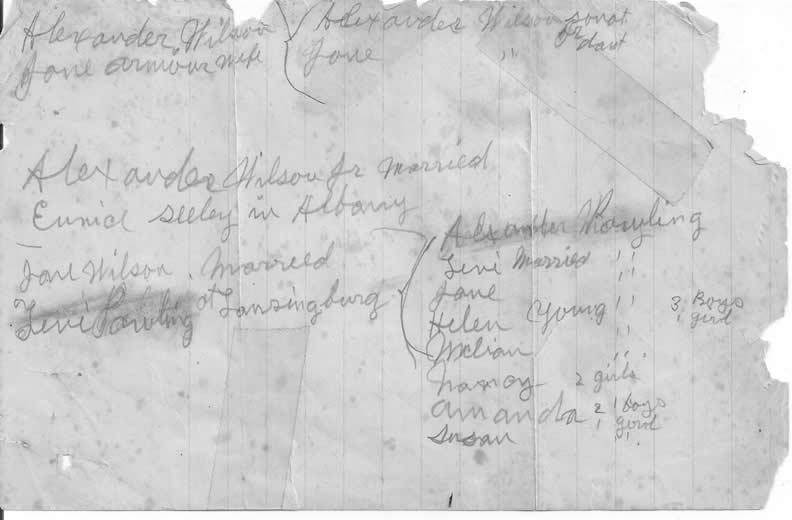 Alexander Wilson { Alexander Wilson son at
Jane Armour Wife Jane " daut
Jr
Alexander Wilson Jr Married
Eunice Seeley in Albany
Jane Wilson. Married
Levi Rowling at Lansingburg
{ Alexander Rowling
Levi Married "
Jane "
Helen Young " 3 Boys
1 girl
"
Nancy 2 girls
Amanda 2 boys
1 girl
Susan "